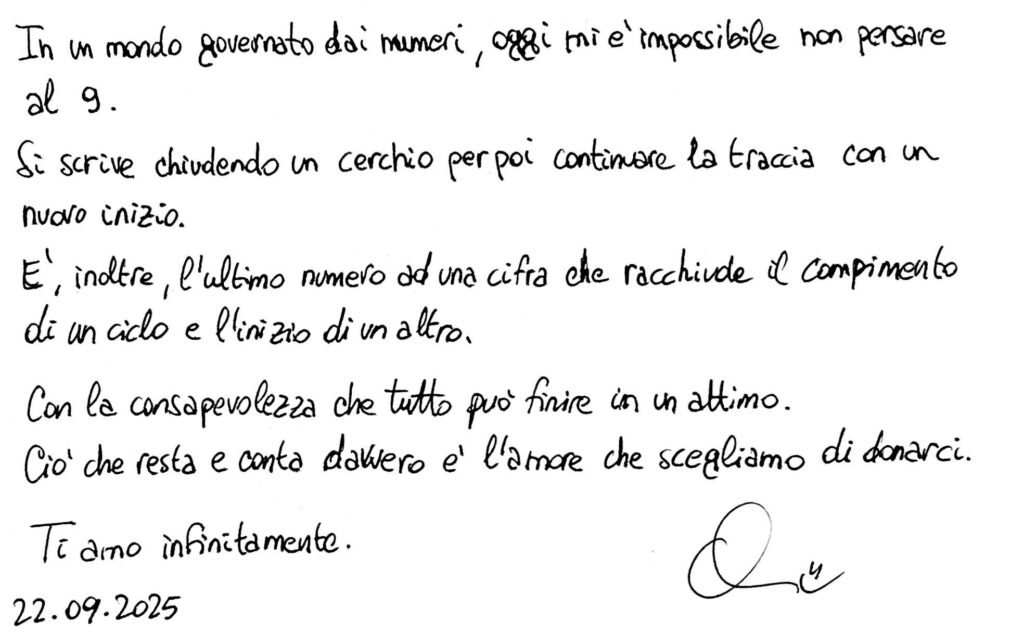 In un mondo governato dai numeri, oggi mi è impossibile non pensare
al 9.
Si scrive chiudendo un cerchio per poi continuare la traccia con un
nuovo inizio.
E', inoltre, l'ultimo numero ad una cifra che racchiude il compimento
di un ciclo e l'inizio di un altro.
Con la consapevolezza che tutto può finire in un attimo.
Ciò che resta e conta davvero è l'amore che scegliamo di donarci.
Ti amo infinitamente.
22.09.2025